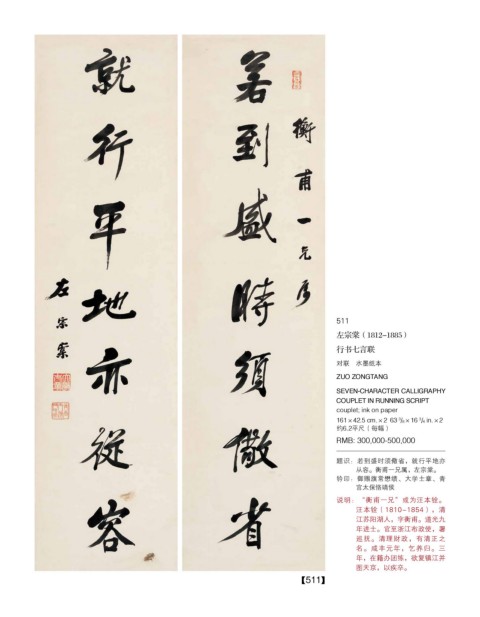 衡甫一兄属
若到盛時須儆省
就行平地亦從容
左宗棠
511
左宗棠（1812–1885）
行书七言联
对联　水墨纸本
ZUO ZONGTANG
SEVEN-CHARACTER CALLIGRAPHY
COUPLET IN RUNNING SCRIPT
couplet; ink on paper
161×42.5 cm. ×2 63 3/8×16 3/4 in. ×2
约6.2平尺（每幅）
RMB: 300,000-500,000
题识：若到盛时须儆省，就行平地亦
从容。衡甫一兄属，左宗棠。
钤印：御赐旂常懋绩、大学士章、青
宫太保恪靖侯
说明：“衡甫一兄”或为汪本铨。
汪本铨（1810–1854），清
江苏阳湖人，字衡甫。道光九
年进士。官至浙江布政使，署
巡抚。清理财政，有清正之
名。咸丰元年，乞养归。三
年，在籍办团练，欲复镇江并
图天京，以疾卒。
【511】